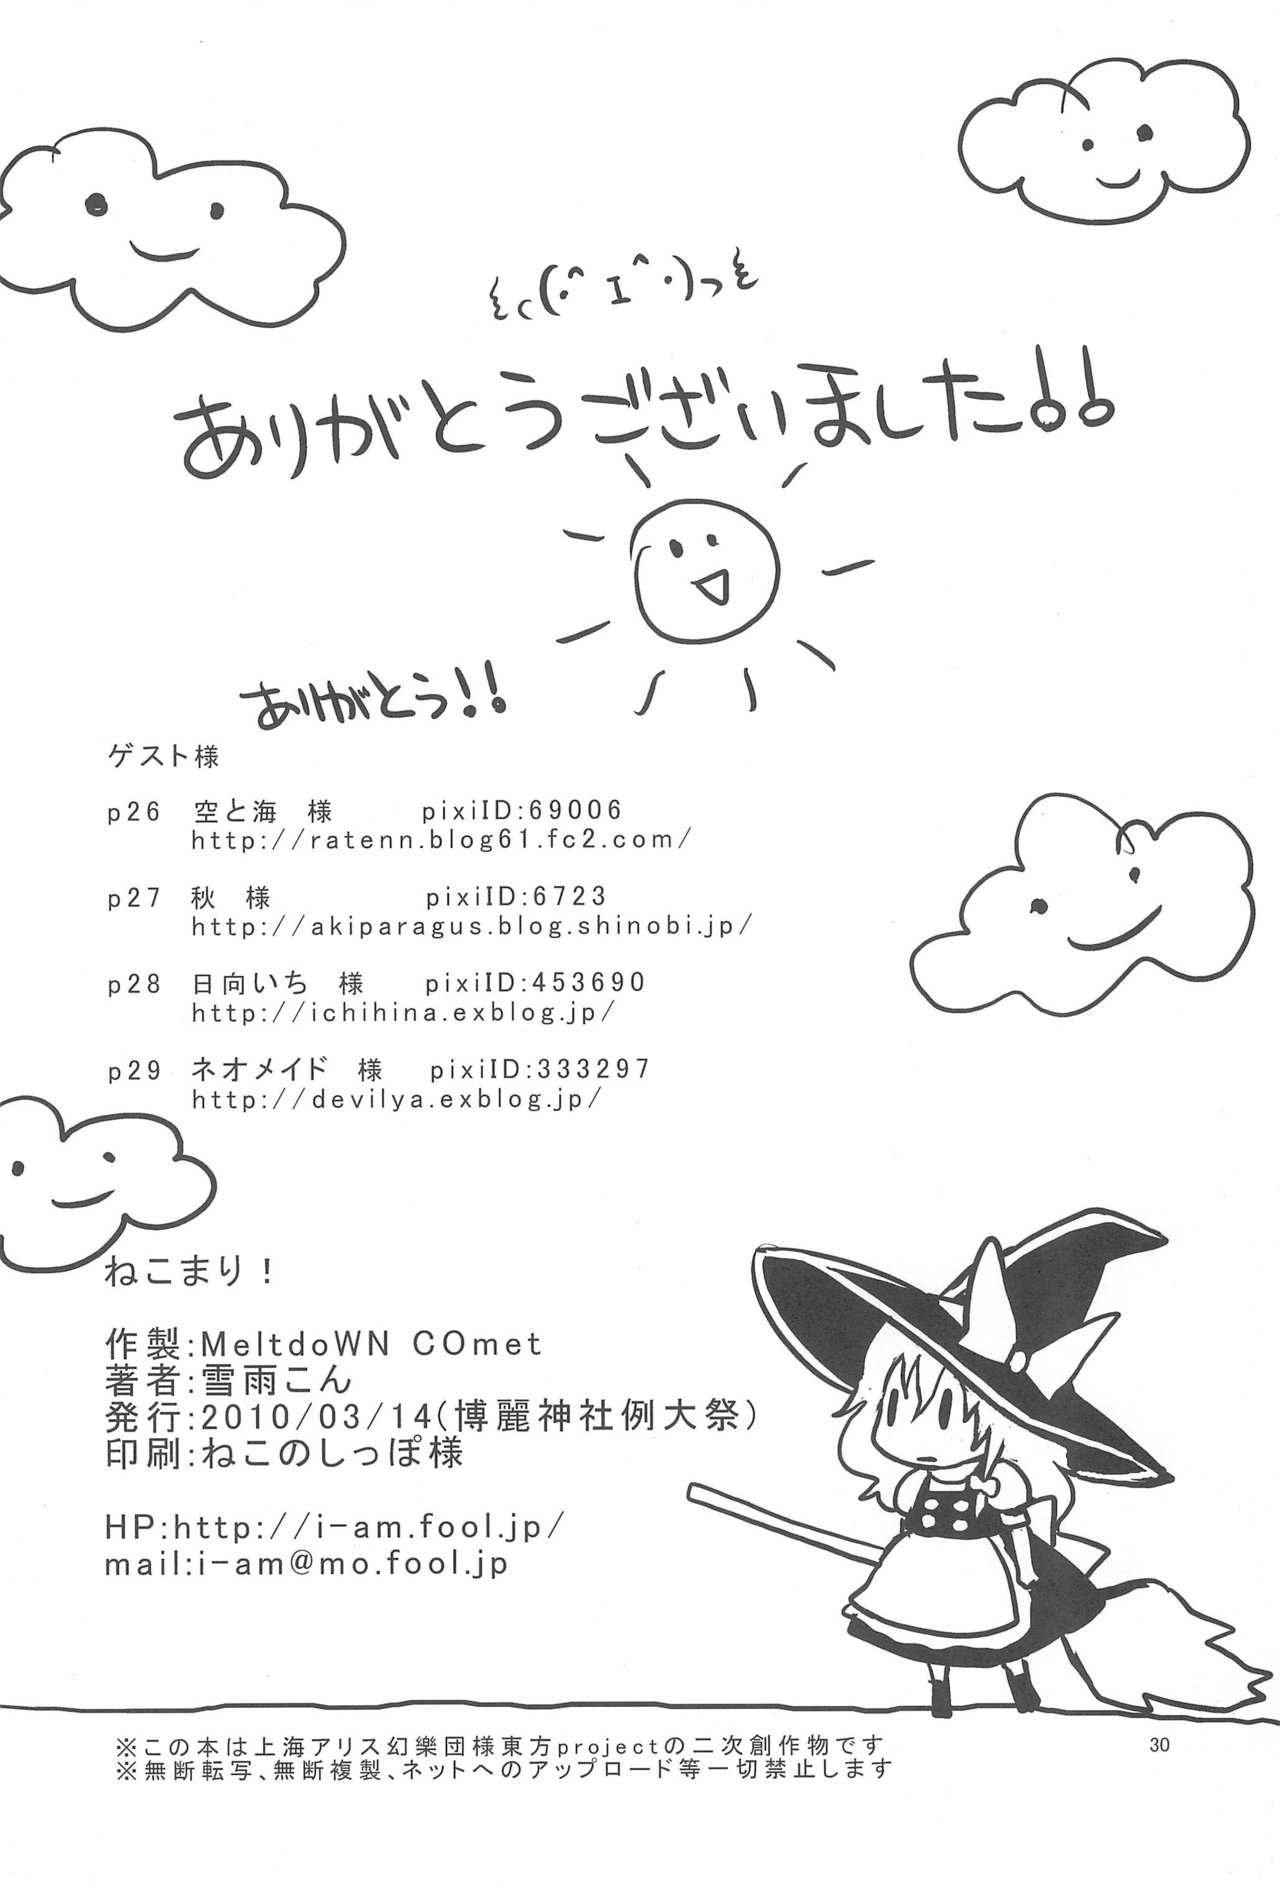 ξc(・^ェ^・)っξ
ありがとうございました!!
ありがとう!!
ゲスト様
p26 空と海 様 pixiID:69006
http://ratenn.blog61.fc2.com/
p27 秋 様 pixiID:6723
http://akiparagus.blog.shinobi.jp/
p28 日向いち 様 pixiID:453690
http://ichihina.exblog.jp/
p29 ネオメイド 様 pixiID:333297
http://devilya.exblog.jp/
ねこまり!
作製:MeltdoWN COmet
著者:雪雨こん
発行:2010/03/14(博麗神社例大祭)
印刷:ねこのしっぽ様
HP:http://i-am.fool.jp/
mail:i-am@mo.fool.jp
※この本は上海アリス幻樂団様東方projectの二次創作物です
※無断転写、無断複製、ネットへのアップロード等一切禁止します
30